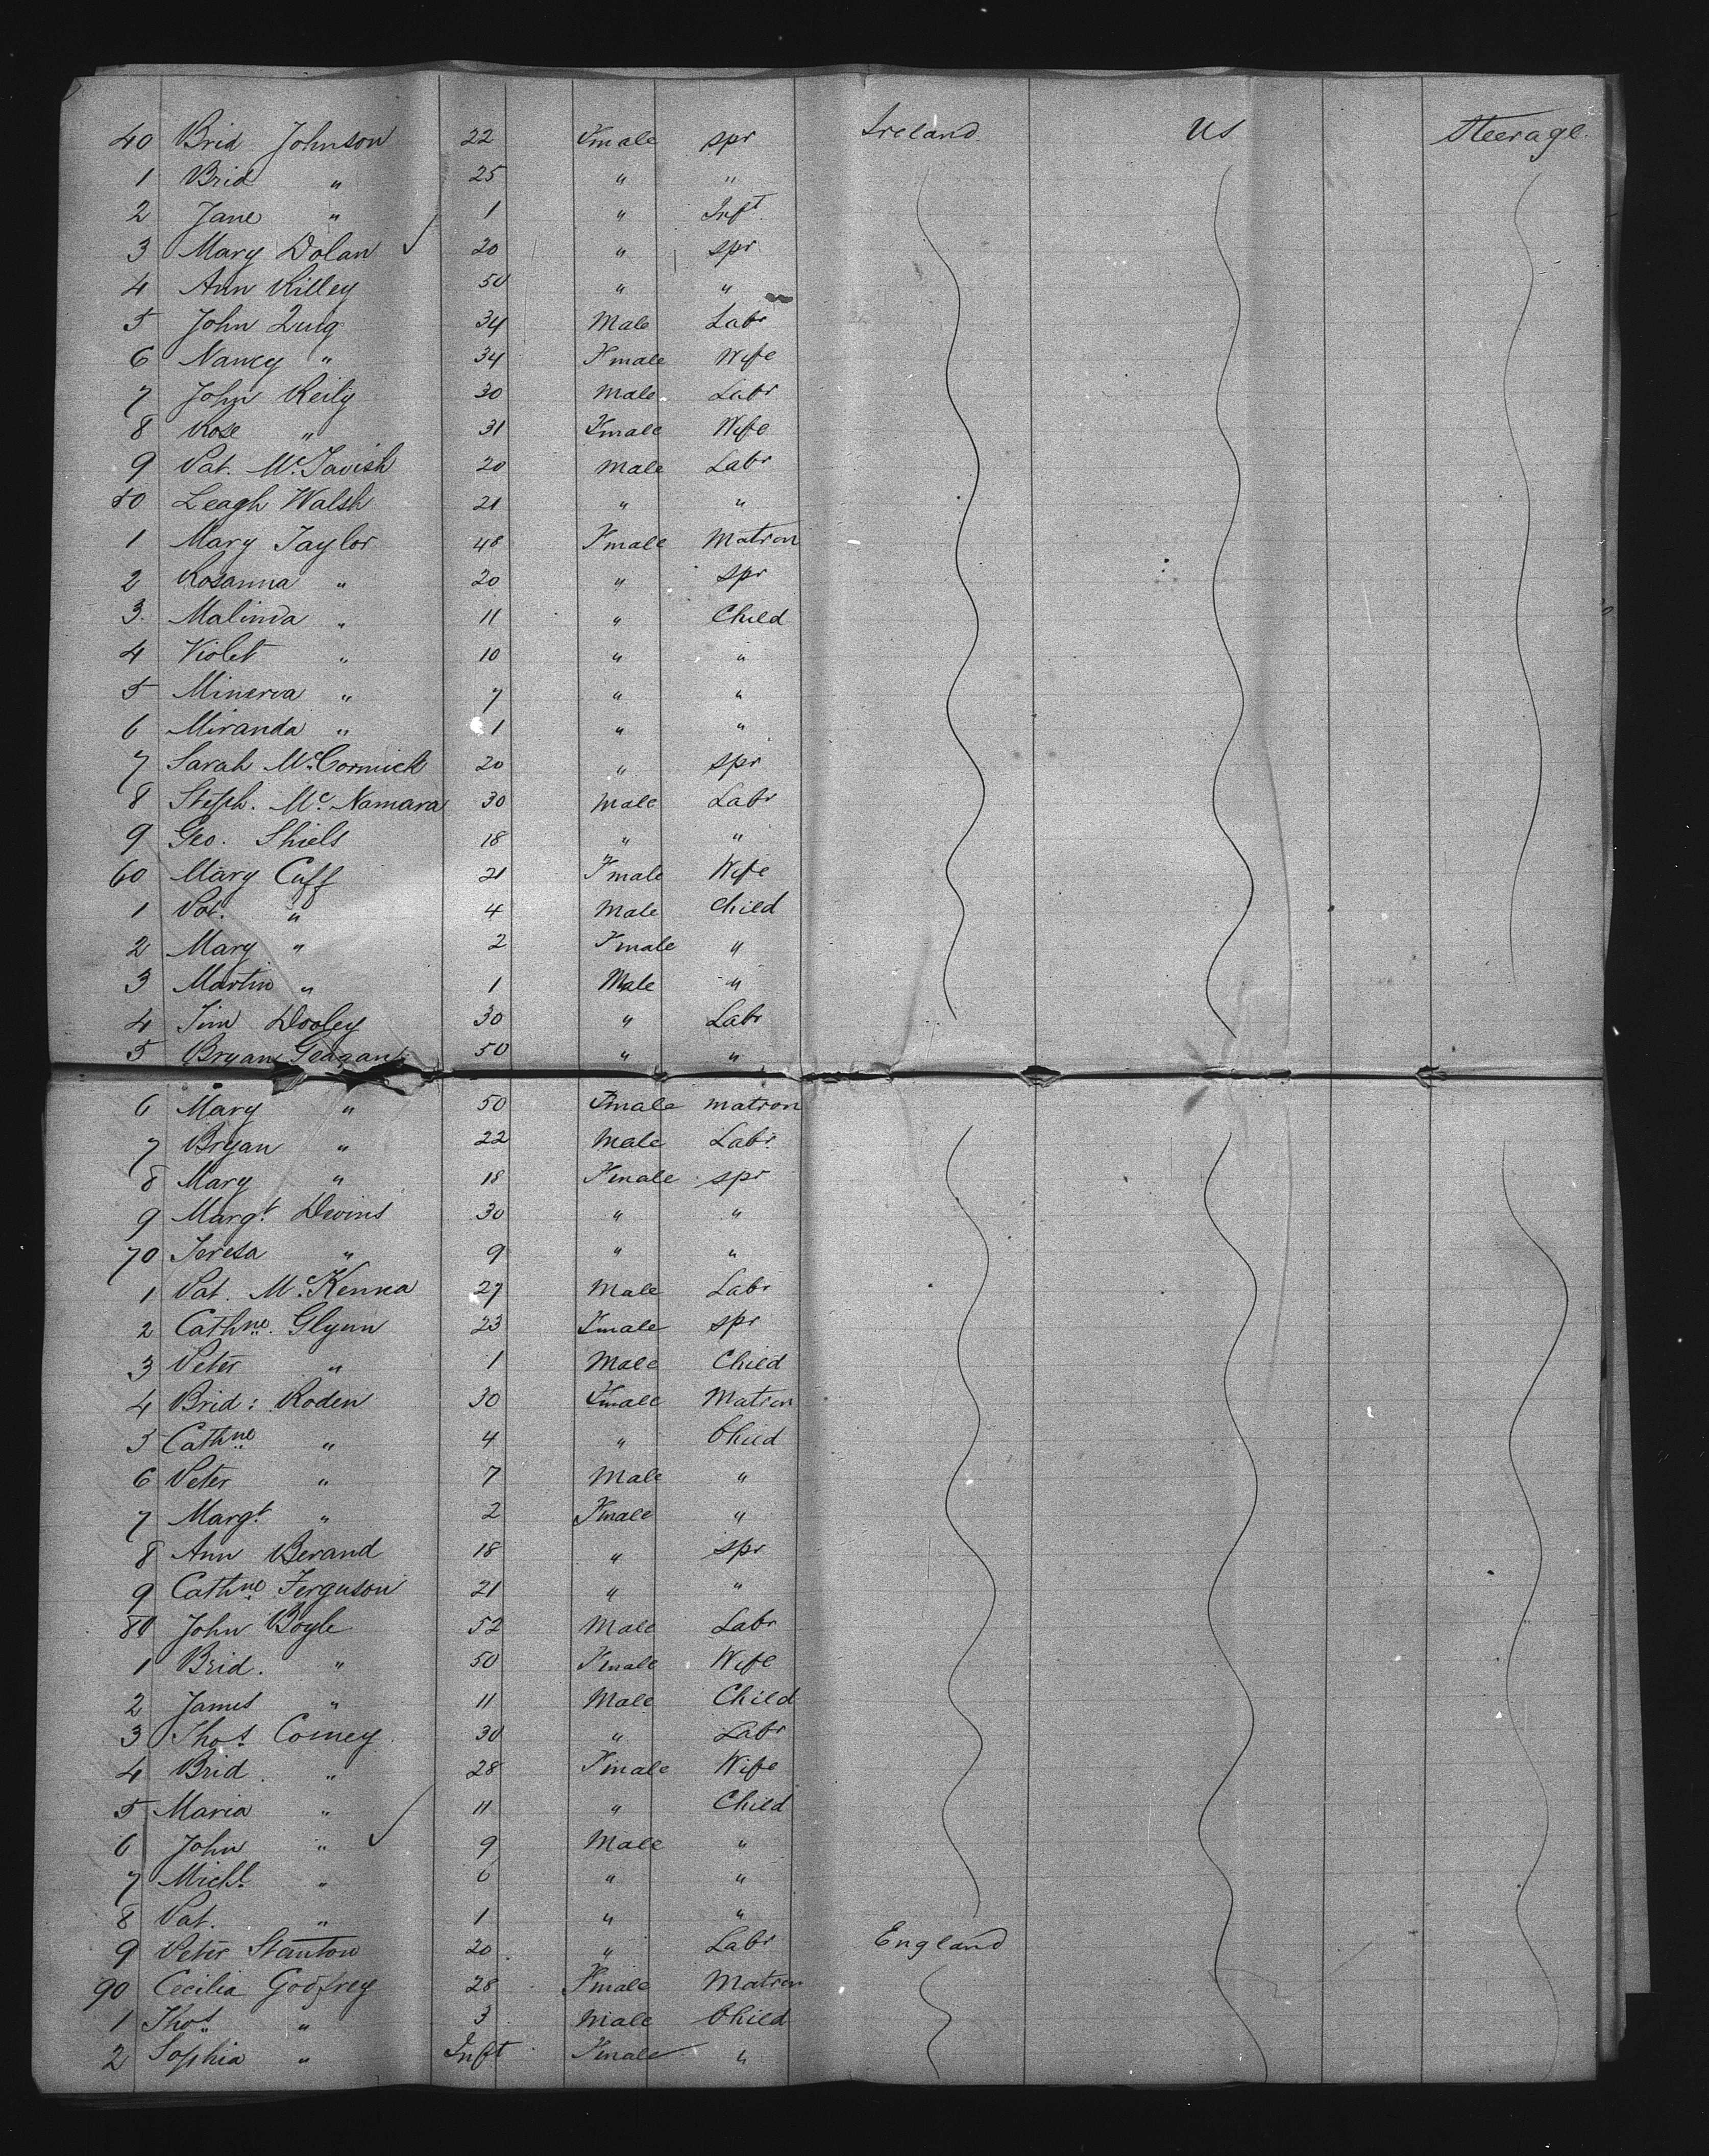 40 Brid Johnson 22 Fmale spr Ireland US Steerage
1 Brid " 25 " "
2 Jane " 1 " Inft
3 Mary Dolan 20 " spr
4 Ann Killey 50 " "
5 John Quig 34 Male Labr
6 Nancy " 34 Fmale Wife
7 John Reily 30 Male Labr
8 Rose " 31 Fmale Wife
9 Pat. McTavish 20 Male Labr
50 Leagh Walsh 21 " "
1 Mary Taylor 48 Fmale Matron
2 Rosanna " 20 " spr
3. Malinda " 11 " Child
4 Violet " 10 " "
5 Minerva " 7 " "
6 Miranda " 1 " "
7 Sarah McCormick 20 " spr
8 Steph. Mc Namara 30 Male Labr
9 Geo. Shiels 18 " "
60 Mary Cuff 21 Fmale Wife
1 Pat. " 4 Male Child
2 Mary " 2 Fmale "
3 Martin " 1 Male "
4 Jim Dooley 30 " Labr
5 Bryan Geagan 50 " "
6 Mary " 50 Fmale matron
7 Bryan " 22 Male Labr
8 Mary " 18 Fmale spr
9 Margt Devins 30 " "
70 Teresa " 9 " "
1 Pat. McKenna 27 Male Labr
2 Cathne. Glynn 23 Fmale spr
3 Peter " 1 Male Child
4 Brid: Roden 30 Fmale Matron
5 Cathne " 4 " Child
6 Peter " 7 Male "
7 Margt " 2 Fmale "
8 Ann Berand 18 " spr
9 Cathne Ferguson 21 " "
80 John Boyle 52 Male Labr
1 Brid. " 50 Fmale Wife
2 James " 11 Male Child
3 Thos Comey 30 " Labr
4 Brid. " 28 Fmale Wife
5 Maria " 11 " Child
6 John " 9 Male "
7 Michl " 6 " "
8 Pat. " 1 " "
9 Peter Stanton 20 " Labr England
90 Cecilia Godfrey 28 Fmale Matron
1 Thos " 3 Male Child
2 Sophia " Inft Fmale "